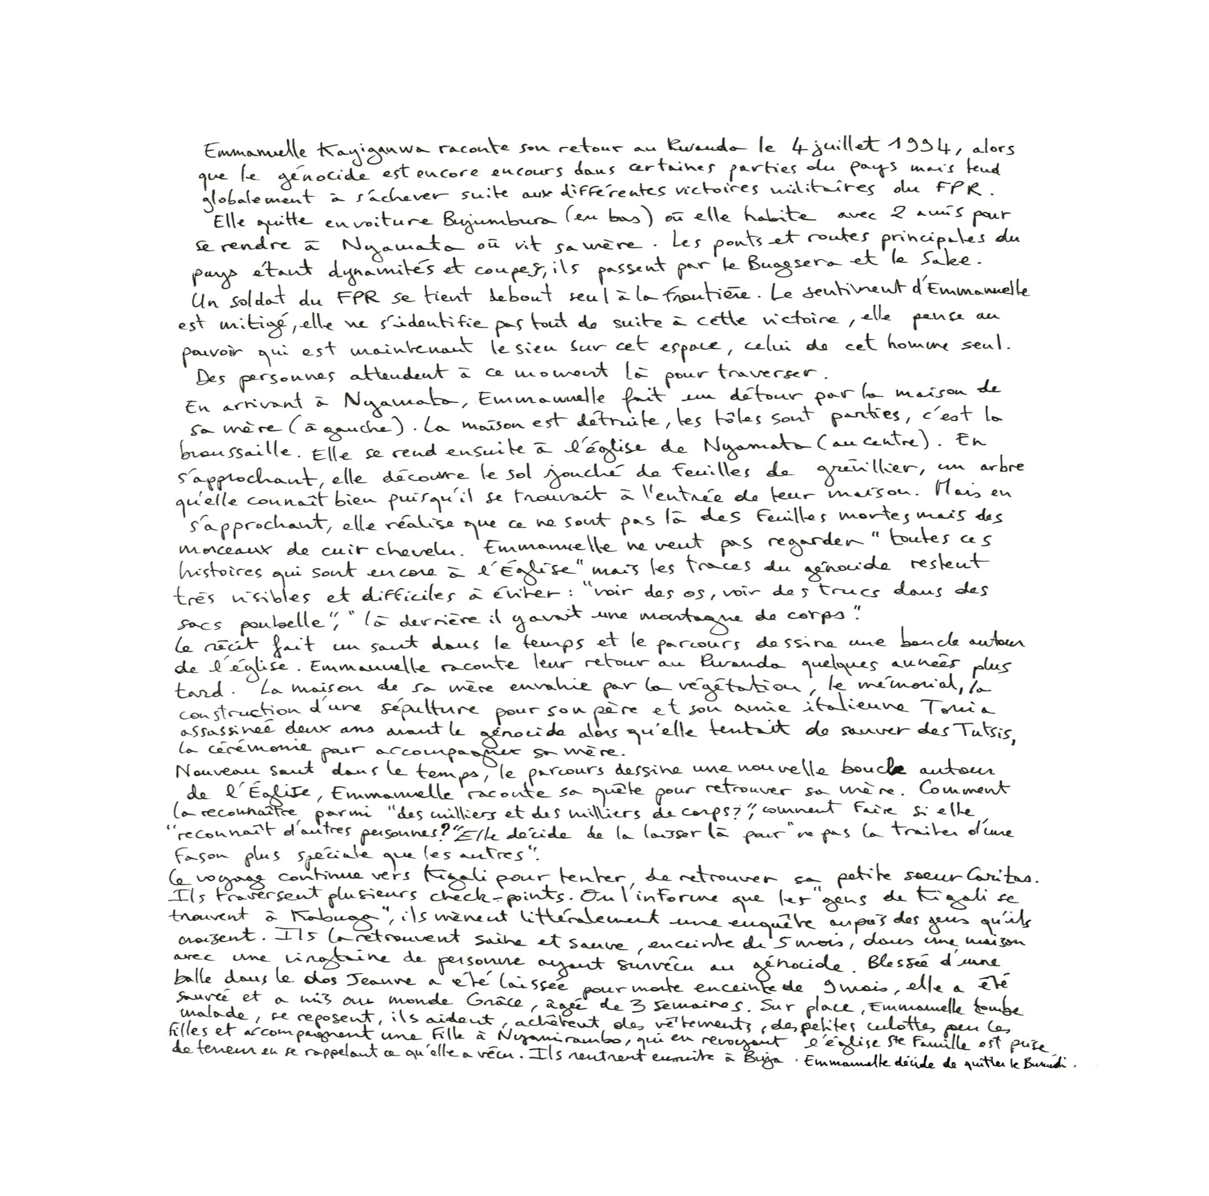 Emmanuelle Kayiganwa raconte son retour au Rwanda le 4 juillet 1994, alors
que le génocide est encore encours dans certaines parties du pays mais tend
globalement à s'achever suite aux différentes victoires militaires du FPR.
Elle quitte en voiture Bujumbura (en bas) où elle habite avec 2 amis pour
se rendre à Nyamata où vit sa mère. Les ponts et routes principales du
pays étant dynamités et coupés, ils passent par le Bugesera et le Sake.
Un soldat du FPR se tient debout seul à la frontière. Le sentiment d'Emmanuelle
est mitigé, elle ne s'identifie pas tout de suite à cette victoire, elle pense au
pouvoir qui est maintenant le sien sur cet espace, celui de cet homme seul.
Des personnes attendent à ce moment là pour traverser.
En arrivant à Nyamata, Emmanuelle fait un détour par la maison de
sa mère (à gauche). La maison est détruite, les tôles sont parties, c'est la
broussaille. Elle se rend ensuite à l'église de Nyamata (au centre). En
s'approchant, elle découvre le sol jouché de feuilles de grevillier, un arbre
qu'elle connaît bien puisqu'il se trouvait à l'entrée de leur maison. Mais en
s'approchant, elle réalise que ce ne sont pas là des feuilles mortes mais des
morceaux de cuir chevelu. Emmanuelle ne veut pas regarder "toutes ces
histoires qui sont encore à l'Église" mais les traces du génocide restent
très visibles et difficiles à éviter : "voir des os, voir des trucs dans des
sacs poubelle", "là derrière il y avait une montagne de corps".
Le récit fait un saut dans le temps et le parcours dessine une boucle autour
de l'église. Emmanuelle raconte leur retour au Rwanda quelques années plus
tard. La maison de sa mère envahie par la végétation, le mémorial, la
construction d'une sépulture pour son père et son amie italienne Tonia
assassinée deux ans avant le génocide alors qu'elle tentait de sauver des Tutsis,
la cérémonie pour accompagner sa mère.
Nouveau saut dans le temps, le parcours dessine une nouvelle boucle autour
de l'Église, Emmanuelle raconte sa quête pour retrouver sa mère. Comment
la reconnaître parmi "des milliers et des milliers de corps?", comment faire si elle
"reconnaît d'autres personnes?" Elle décide de la laisser là pour "ne pas la traiter d'une
façon plus spéciale que les autres".
Le voyage continue vers Kigali pour tenter de retrouver sa petite soeur Caritas.
Ils traversent plusieurs check-points. On l'informe que les "gens de Kigali se
trouvent à Kabuga", ils mènent littéralement une enquête auprès des gens qu'ils
croisent. Ils la retrouvent saine et sauve, enceinte de 5 mois, dans une maison
avec une vingtaine de personne ayant survécu au génocide. Blessée d'une
balle dans le dos Jeanne a été laissée pour morte enceinte de 9 mois, elle a été
sauvée et a mis au monde Grâce, âgée de 3 semaines. Sur place, Emmanuelle tombe
malade, se reposent, ils aident, achètent des vêtements, des petites culottes pour les
filles et accompagnent une fille à Nyamirambo, qui en revoyant l'église Ste Famille est prise
de terreur en se rappelant ce qu'elle a vécu. Ils rentrent ensuite à Buja. Emmanuelle décide de quitter le Burundi.